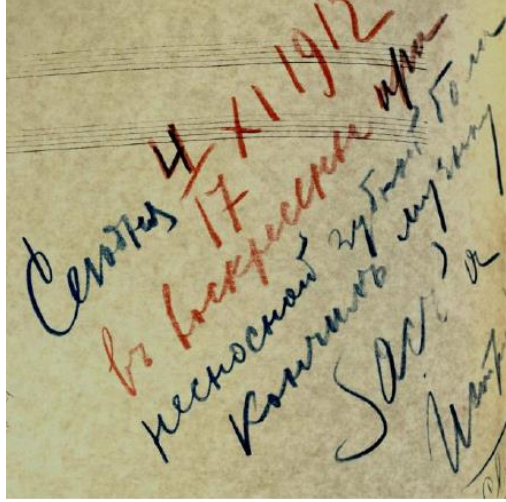 Сегодня 4/17 XI 1912
въ воскресенье при
несносной зубной боли
кончилъ музыку
Sacr'а